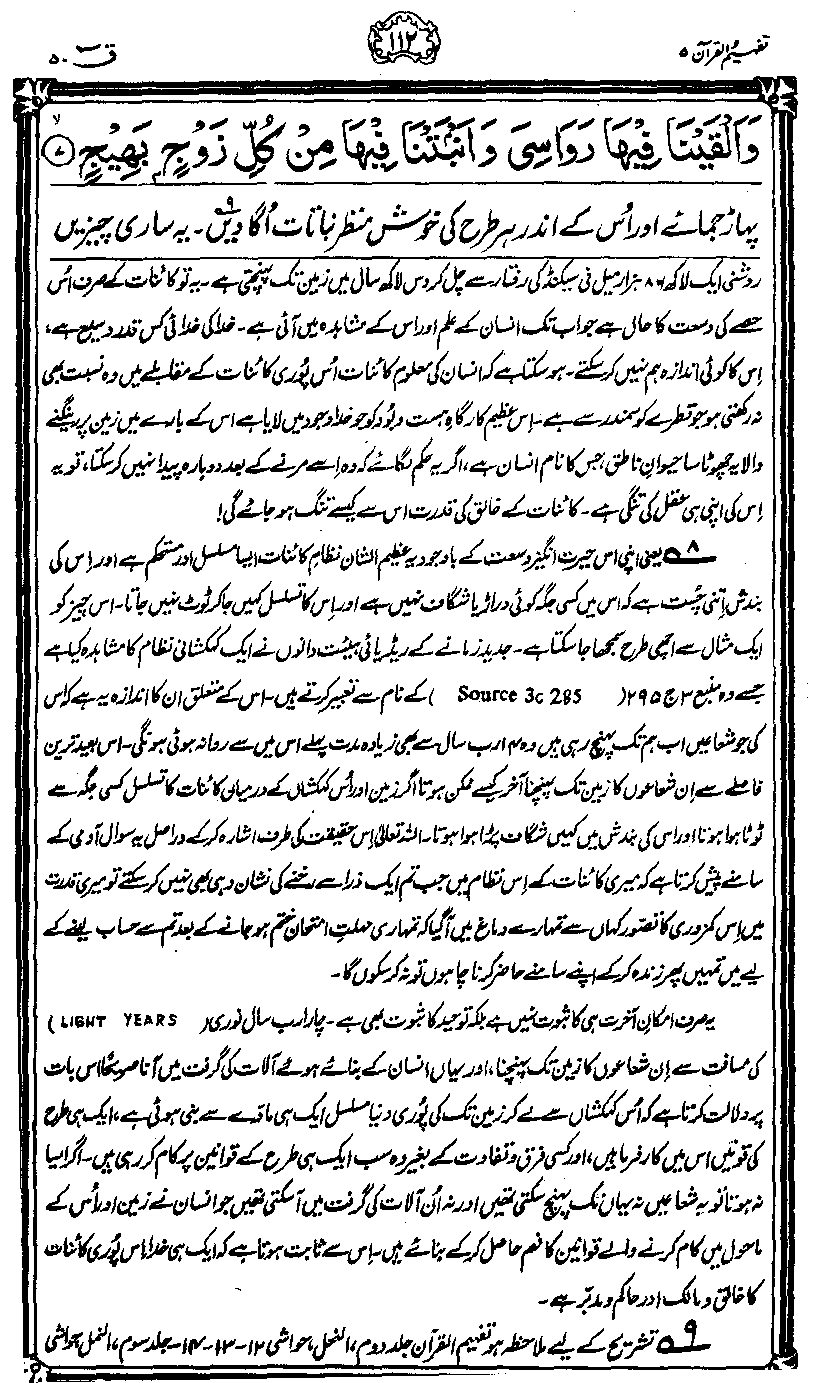 تفہیم القرآن ۵
۱۱۲
قٓ ۵۰
وَاَلْقَيْنَا فِيْهَا رَوَاسِيَ وَاَنْۢبَتْنَا فِيْهَا مِنْ كُلِّ زَوْجٍۢ بَهِيْجٍ ۙ﴿۷﴾
پہاڑ جمائے اور اُس کے اندر ہر طرح کی خوش منظر نباتات اُگا دیں۹۔ یہ ساری چیزیں
روشنی ایک لاکھ ۸۶ ہزار میل فی سیکنڈ کی رفتار سے چل کر دس لاکھ سال میں زمین تک پہنچتی ہے۔ یہ تو کائنات کے صرف اُس
حصے کی وسعت کا حال ہے جو اب تک انسان کے علم اور اس کے مشاہدہ میں آئی ہے۔ خدا کی خدائی کس قدر وسیع ہے،
اِس کا کوئی اندازہ ہم نہیں کر سکتے۔ ہو سکتا ہے کہ انسان کی معلوم کائنات اُس پُوری کائنات کے مقابلے میں وہ نسبت بھی
نہ رکھتی ہو جو قطرے کو سمندر سے ہے۔ اِس عظیم کارگاہِ ہست و بُود کو جو خدا وجود میں لایا ہے اس کے بارے میں زمین پر رینگنے
والا یہ چھوٹا سا حیوانِ ناطق، جس کا نام انسان ہے، اگر یہ حکم لگائے کہ وہ اسے مرنے کے بعد دوبارہ پیدا نہیں کر سکتا، تو یہ
اِس کی اپنی ہی عقل کی تنگی ہے۔ کائنات کے خالق کی قدرت اس سے کیسے تنگ ہو جائے گی!
۸ یعنی اپنی اس حیرت انگیز وسعت کے باوجود یہ عظیم الشان نظامِ کائنات ایسا مسلسل اور مستحکم ہے اور اِس کی
بندش اِتنی چُست ہے کہ اس میں کسی جگہ کوئی دراڑ یا شگاف نہیں ہے اور اِس کا تسلسل کہیں جا کر ٹوٹ نہیں جاتا۔ اس چیز کو
ایک مثال سے اچھی طرح سمجھا جا سکتا ہے۔ جدید زمانے کے ریڈیائی ہیئت دانوں نے ایک کہکشانی نظام کا مشاہدہ کیا ہے
جسے وہ منبع ۳ ج ۲۹۵ ( Source 3c 285 ) کے نام سے تعبیر کرتے ہیں۔ اس کے متعلق ان کا اندازہ یہ ہے کہ اس
کی جو شعاعیں اب ہم تک پہنچ رہی ہیں وہ ۴ ارب سال سے بھی زیادہ مدت پہلے اس میں سے روانہ ہوئی ہونگی۔ اس بعید ترین
فاصلے سے اِن شعاعوں کا زمین تک پہنچنا آخر کیسے ممکن ہوتا اگر زمین اور اُس کہکشاں کے درمیان کائنات کا تسلسل کسی جگہ سے
ٹوٹا ہوا ہوتا اور اس کی بندش میں کہیں شگاف پڑا ہوا ہوتا۔ اللہ تعالیٰ اِس حقیقت کی طرف اشارہ کر کے دراصل یہ سوال آدمی کے
سامنے پیش کرتا ہے کہ میری کائنات کے اِس نظام میں جب تم ایک ذرا سے رخنے کی نشان دہی بھی نہیں کر سکتے تو میری قدرت
میں اِس کمزوری کا تصور کہاں سے تمہارے دماغ میں آگیا کہ تمہاری مہلتِ امتحان ختم ہو جانے کے بعد تم سے حساب لینے کے
لیے میں تمہیں پھر زندہ کر کے اپنے سامنے حاضر کرنا چاہوں تو نہ کر سکوں گا۔
یہ صرف امکانِ آخرت ہی کا ثبوت نہیں ہے بلکہ توحید کا ثبوت بھی ہے۔ چار ارب سالِ نوری ( LIGHT YEARS )
کی مسافت سے اِن شعاعوں کا زمین تک پہنچنا، اور یہاں انسان کے بنائے ہوئے آلات کی گرفت میں آنا صریحًا اس بات
پر دلالت کرتا ہے کہ اُس کہکشاں سے لے کر زمین تک کی پُوری دنیا مسلسل ایک ہی مادّے سے بنی ہوئی ہے، ایک ہی طرح
کی قوتیں اس میں کارفرما ہیں، اور کسی فرق و تفاوت کے بغیر وہ سب ایک ہی طرح کے قوانین پر کام کر رہی ہیں۔ اگر ایسا
نہ ہوتا تو یہ شعاعیں نہ یہاں تک پہنچ سکتی تھیں اور نہ اُن آلات کی گرفت میں آسکتی تھیں جو انسان نے زمین اور اُس کے
ماحول میں کام کرنے والے قوانین کا فہم حاصل کر کے بنائے ہیں۔ اِس سے ثابت ہوتا ہے کہ ایک ہی خدا اِس پُوری کائنات
کا خالق و مالک اور حاکم و مدبّر ہے۔
۹ تشریح کے لیے ملاحظہ ہو تفہیم القرآن جلد دوم، النحل، حواشی ۱۲-۱۳-۱۴۔ جلد سوم، النمل، حواشی